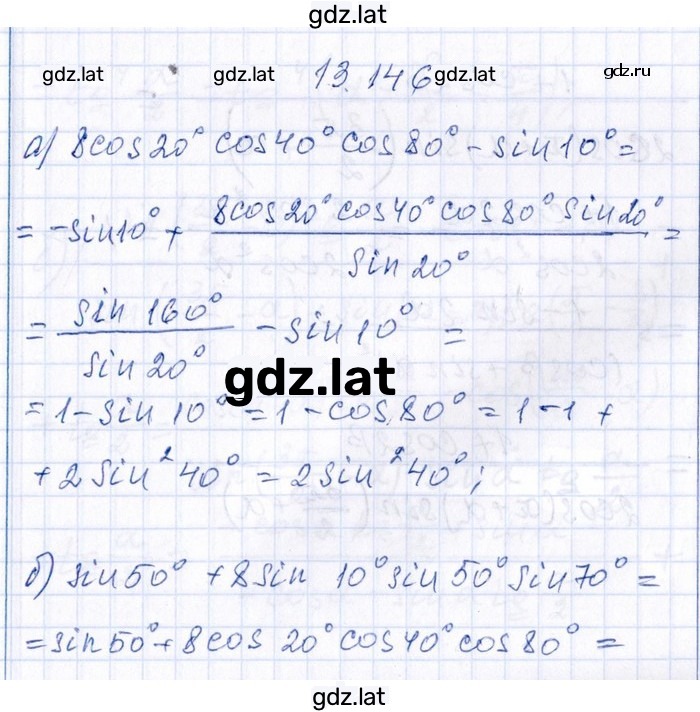 gdz.lat
gdz.lat gdz.lat gdz.ru
13.146
а) 8cos20° cos40° cos80° - sin10° =
= -sin10° + 8cos20° cos40° cos80° sin20° / sin20° =
= sin160° / sin20° - sin10° =
gdz.lat
= 1 - sin10° = 1 - cos80° = 1 - 1 +
+ 2sin²40° = 2sin²40°;
б) sin50° + 8sin 10° sin50° sin70° =
= sin50° + 8cos 20° cos40° cos80° =
gdz.lat